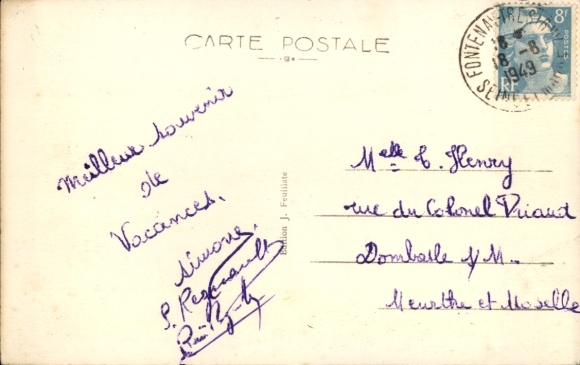 CARTE POSTALE
8F
POSTES
RF
FONTENAY-TRESIGNY
18 -8
1949
SEINE ET
Meilleur souvenir
de
Vacances.
Simone.
P. Regnault
Edition J. Feuillate
Melle T. Henry
rue du Colonel Driant
Dombasle s/M.
Meurthe et Moselle